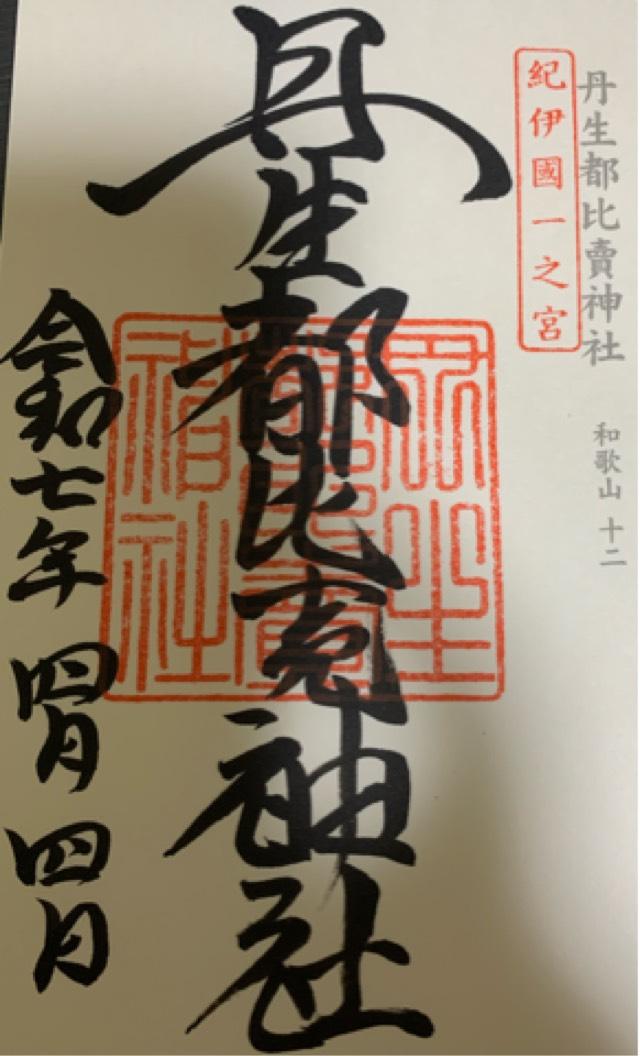 丹生都比賣神社 和歌山 十二
紀伊國一之宮
丹生都比売神社
丹生
都比賣
神社
令和七年 四月 四月